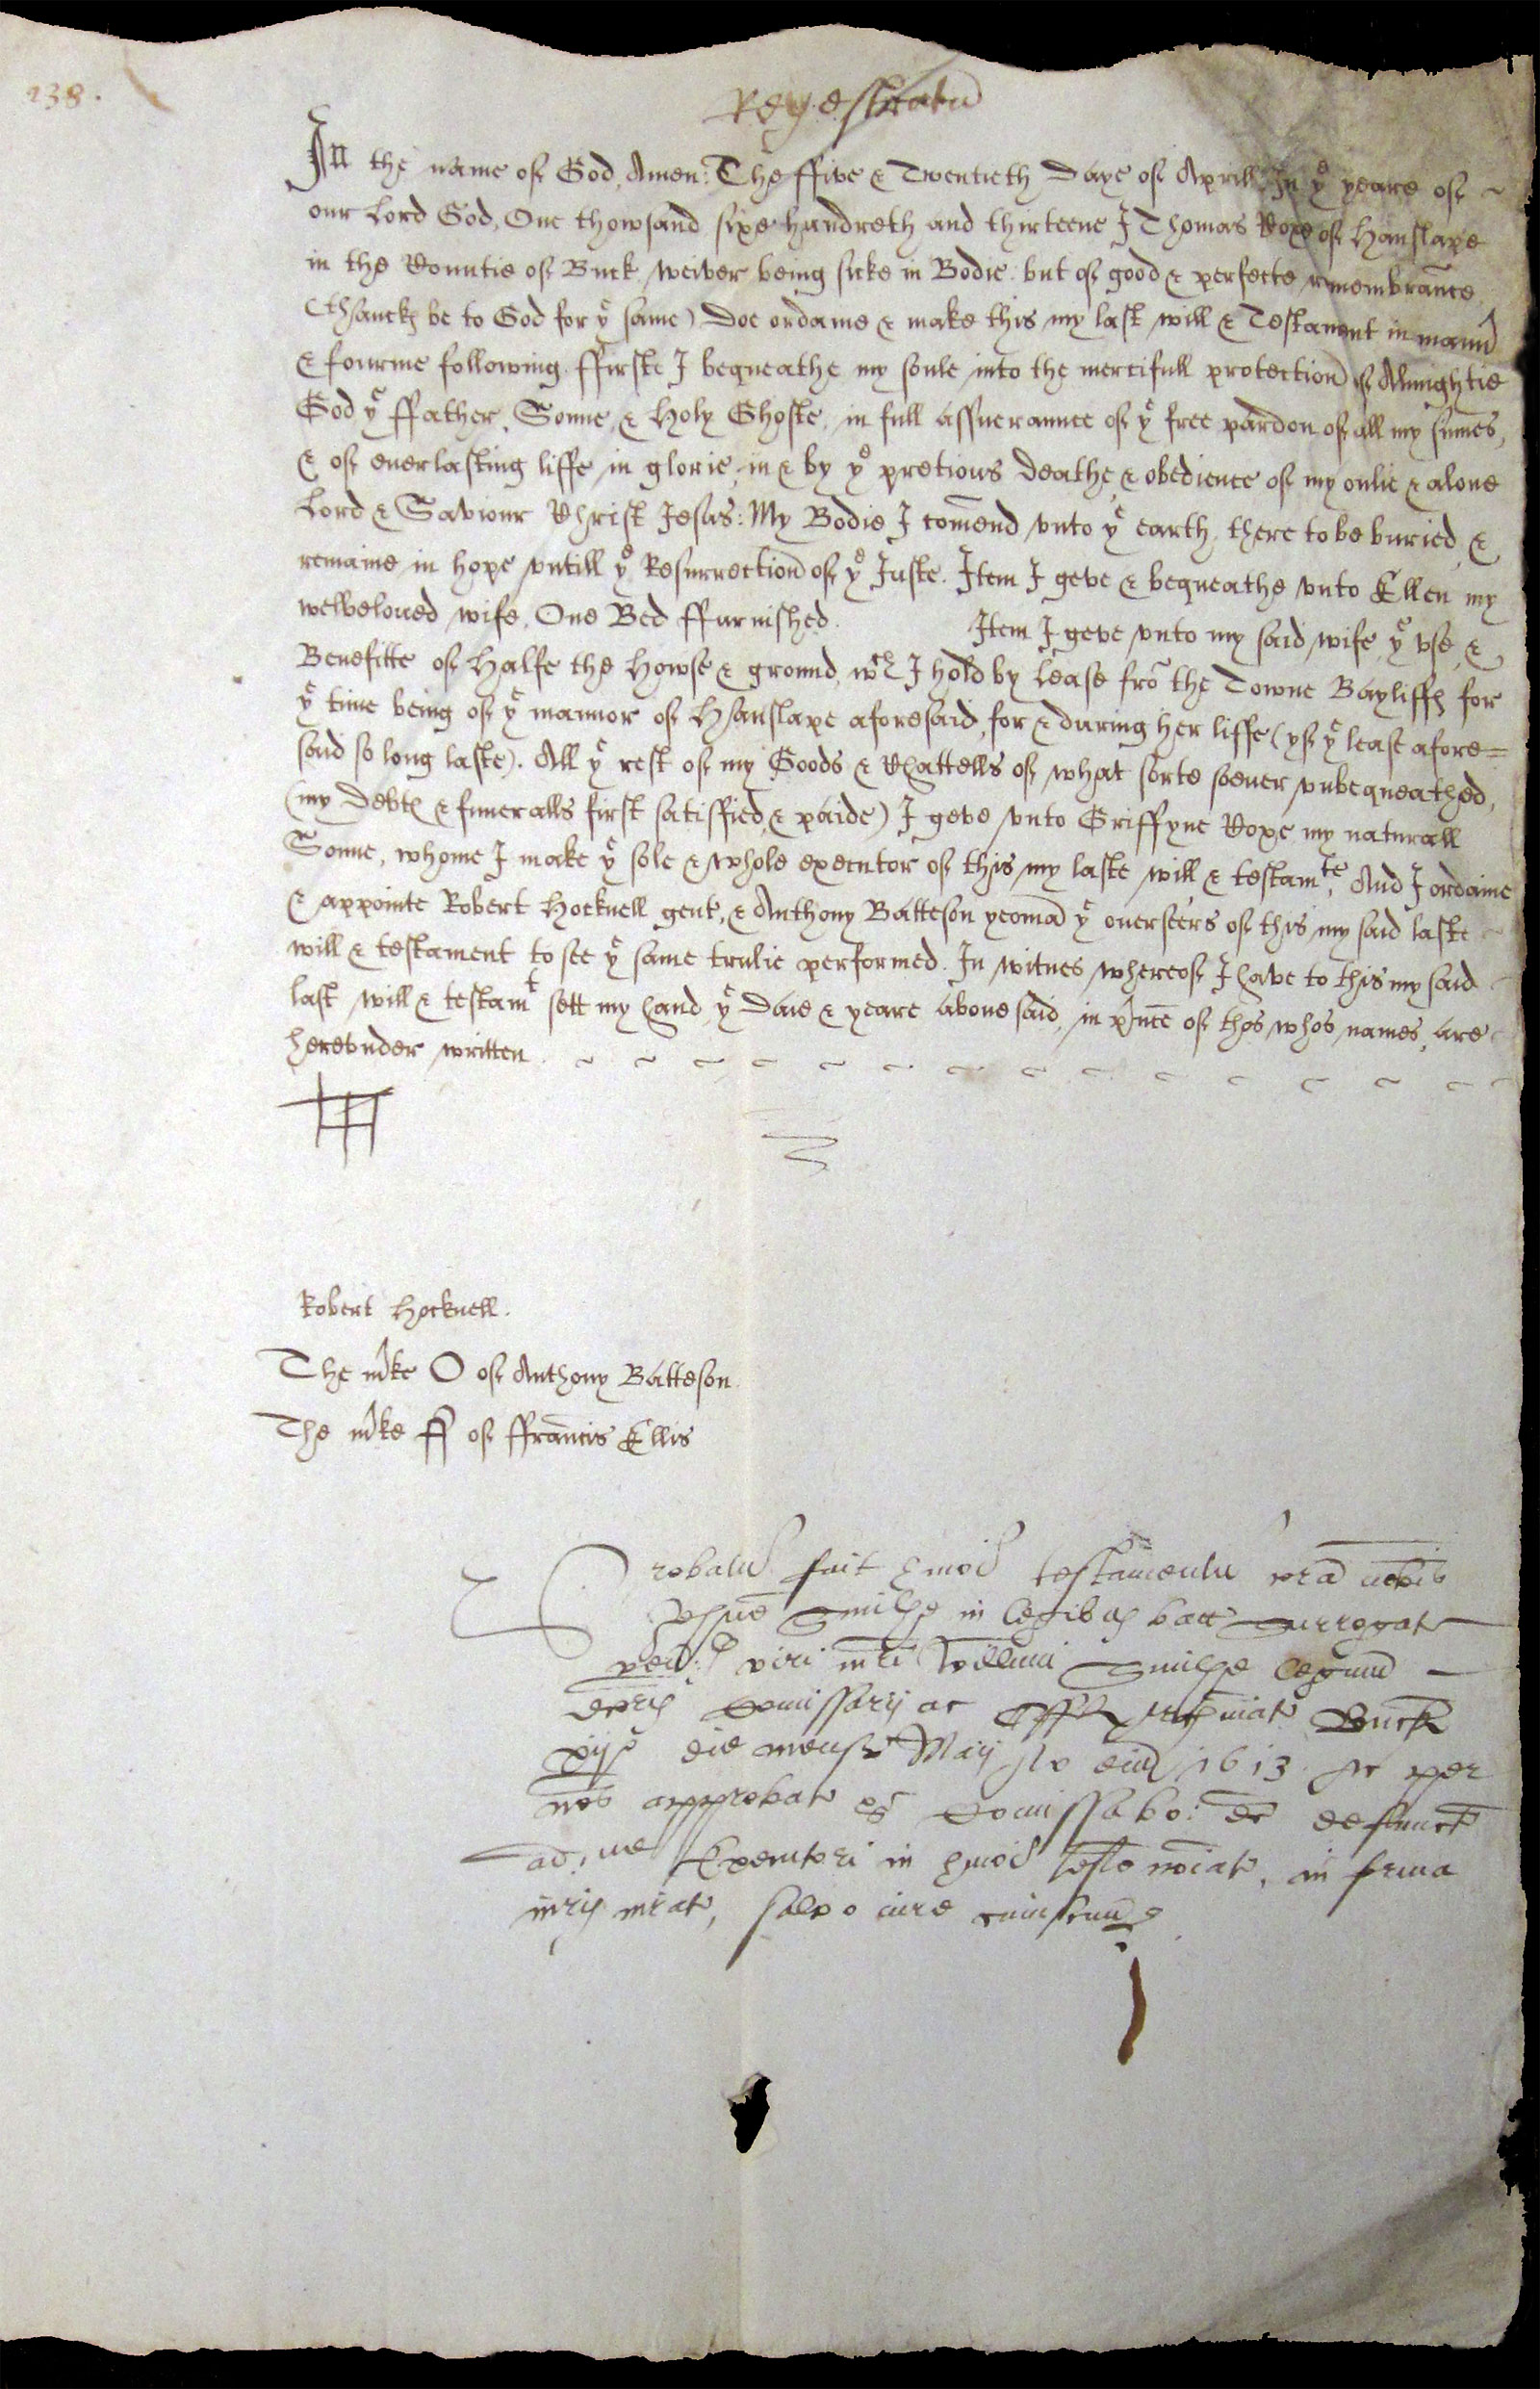 238.
Regestratu
In the name of God, Amen: The ffive & Twentieth Daye of Aprill In ye yeare of
our Lord God, One thowsand sixe hundreth and thirteene I Thomas Coxe of Hanslape
in the Countie of Buck weiver being sicke in Bodie but of good & perfecte remembrance
(thanckes be to God for ye same) Doe ordaine & make this my last will & Testament in mann
& fourme following. ffirste I bequeathe my soule into the mercifull protection of Almightie
God ye ffather, Sonne, & Holy Ghoste, in full assuerannce of ye free pardon of all my sinnes,
& of everlasting liffe in glorie, in & by ye pretious deathe & obedience of my onlie & alone
Lord & Saviour Christ Jesus: My Bodie I comend vnto ye earth, there to be buried, &
remaine in hope vntill ye Resurrection of ye Juste. Item I geve & bequeathe vnto Ellen my
welbeloued wife, One Bed ffurnished. Item I geve vnto my said wife ye vse, &
Benefitte of Halfe the Howse & ground, wch I hold by Lease fro the Towne Bayliffes for
ye time being of ye mannor of Hanslape aforesaid, for & during her liffe (yf ye lease afore=
said so long laste). All ye rest of my Goods & Chattells of what sorte soever vnbequeathed,
(my Debts & funeralls first satisfied, & paide) I geve vnto Griffyne Coxe my naturall
Sonne, whome I make ye sole & whole executor of this my laste will & testamte, And I ordaine
& appointe Robert Hocknell gent, & Anthony Batteson yeoman ye overseers of this my said laste
will & testament to see ye same trulie performed. In witnes whereof I have to this my said
last will & testamt sett my hand ye Daie & yeare abovesaid, in pnce of thos whos names are
herevnder written
Robert Hocknell.
The mke O of Anthony Batteson
The mke ff of ffrancis Ellis
Probatu fuit hmoi testamentu cora
Smithe in legibus bacc Surrogat
viri mri Willmi Smithe legum
dcoris Comissarij ac Offlis Archinat Buck
die mensis Maij Ao dni 1613. Ac per
nos approbat Comissa bo: dc defunct
Executori in hmoi testo noiat, in forma
iuris iurat, salvo iure cuiuscunq